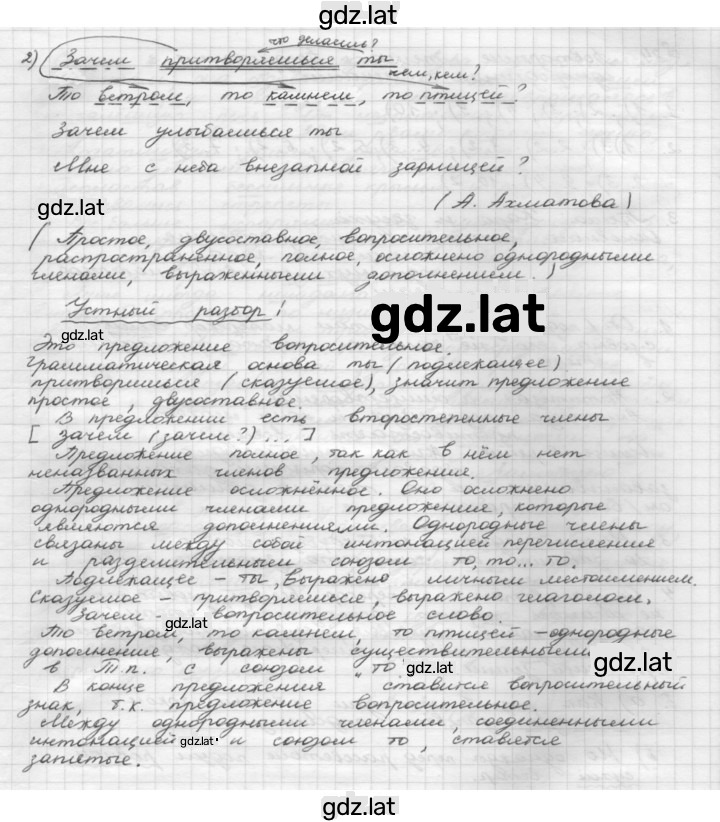 gdz.lat
что делаешь?
2) Зачем притворяешься ты
чем, кем?
То ветром, то камнем, то птицей?
Зачем улыбаешься ты
Мне с неба внезапной зарницей?
gdz.lat
(А. Ахматова)
(Простое, двусоставное, вопросительное,
распространённое, полное, осложнено однородными
членами, выраженными дополнением.)
Устный разбор!
gdz.lat
gdz.lat
Это предложение вопросительное.
Грамматическая основа ты (подлежащее)
притворяешься (сказуемое), значит предложение
простое, двусоставное.
В предложении есть второстепенные члены
[ Зачем (зачем?) ... ]
Предложение полное, так как в нём нет
неназванных членов предложения.
Предложение осложнённое. Оно осложнено
однородными членами предложения, которые
являются дополнениями. Однородные члены
связаны между собой интонацией перечисления
и разделительным союзом то, то... то.
Подлежащее - ты, выражено личным местоимением.
Сказуемое - притворяешься, выражено глаголом.
Зачем - вопросительное слово.
gdz.lat
То ветром, то камнем, то птицей - однородные
дополнения, выражены существительными
в Т.п. с союзом "то
gdz.lat
gdz.lat
В конце предложения ставится вопросительный
знак, т.к. предложение вопросительное.
Между однородными членами, соединенными
интонацией и союзом то, ставятся
gdz.lat
запятые.
gdz.lat